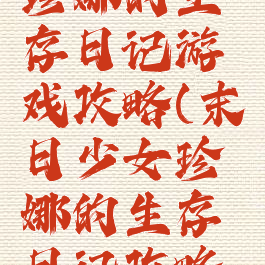 珍娜的生
存日记游
戏攻略(末
日少女珍
娜的生存
日记攻略